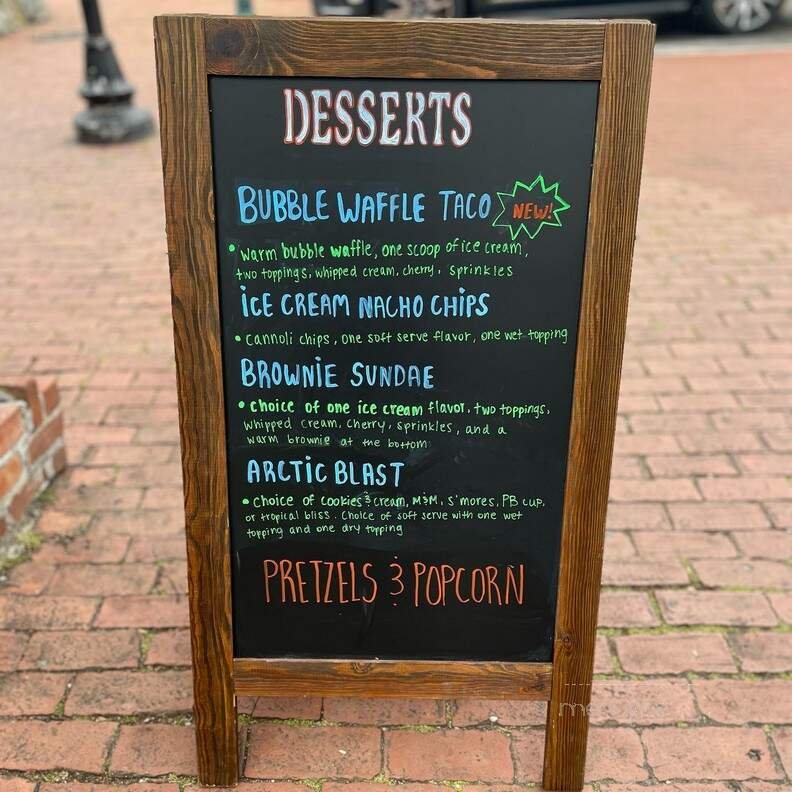 DESSERTS
BUBBLE WAFFLE TACO NEW!
• warm bubble waffle, one scoop of ice cream,
two toppings, whipped cream, cherry, sprinkles
iCE CREAM NACHO CHIPS
• cannoli chips, one soft serve flavor, one wet topping
BROWNiE SUNDAE
• choice of one ice cream flavor, two toppings,
whipped cream, cherry, sprinkles, and a
warm brownie at the bottom
ARCTiC BLAST
• choice of cookies & cream, M&M, s'mores, PB cup,
or tropical bliss. Choice of soft serve with one wet
topping and one dry topping
PRETZELS & POPCORN